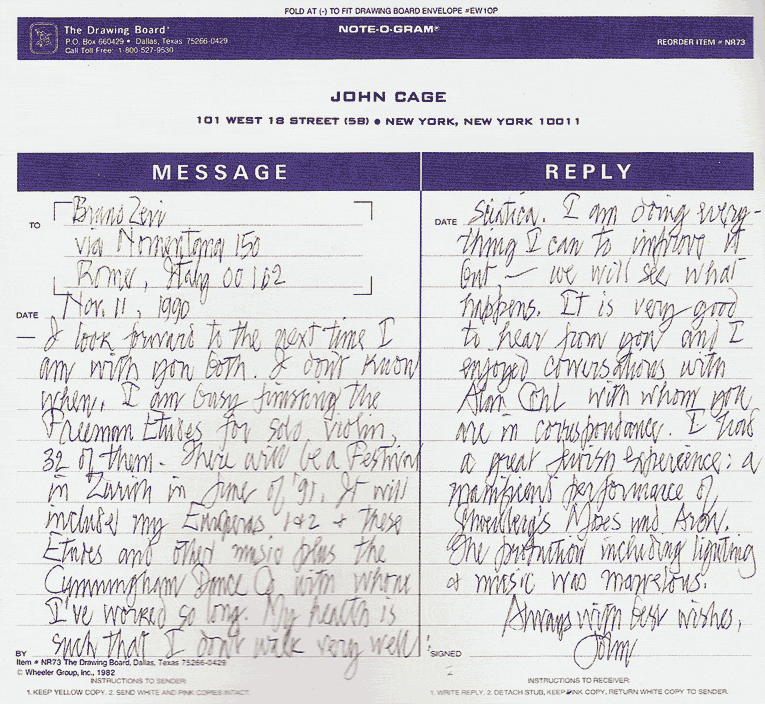 FOLD AT (-) TO FIT DRAWING BOARD ENVELOPE #EW10P
The Drawing Board®
P.O. Box 660429 • Dallas, Texas 75266-0429
Call Toll Free: 1-800-527-9530
NOTE-O-GRAM®
REORDER ITEM # NR73
JOHN CAGE
101 WEST 18 STREET (5B) ● NEW YORK, NEW YORK 10011
MESSAGE
TO
Bruno Zevi
via Nomentana 150
Rome, Italy 00162
DATE
Nov. 11, 1990
I look forward to the next time I
am with you both. I don't know
when. I am busy finishing the
Freeman Etudes for solo violin,
32 of them. There will be a Festival
in Zurich in June of '91. It will
include my Europeras 1 & 2 & these
Etudes and other music plus the
Cunningham Dance Co with whom
I've worked so long. My health is
such that I don't walk very well:
BY
Item # NR73 The Drawing Board, Dallas, Texas 75266-0429
© Wheeler Group, Inc., 1982
INSTRUCTIONS TO SENDER:
1. KEEP YELLOW COPY. 2. SEND WHITE AND PINK COPIES INTACT.
REPLY
DATE
Sciatica. I am doing every-
thing I can to improve it
but — we will see what
happens. It is very good
to hear from you and I
enjoyed conversations with
Alan with whom you
are in correspondance. I had
a great Jewish experience: a
magnificent performance of
Schoenberg's Moses und Aron.
The production including lighting
& music was marvelous.
Always with best wishes,
SIGNED
John
INSTRUCTIONS TO RECEIVER:
1. WRITE REPLY. 2. DETACH STUB, KEEP PINK COPY, RETURN WHITE COPY TO SENDER.